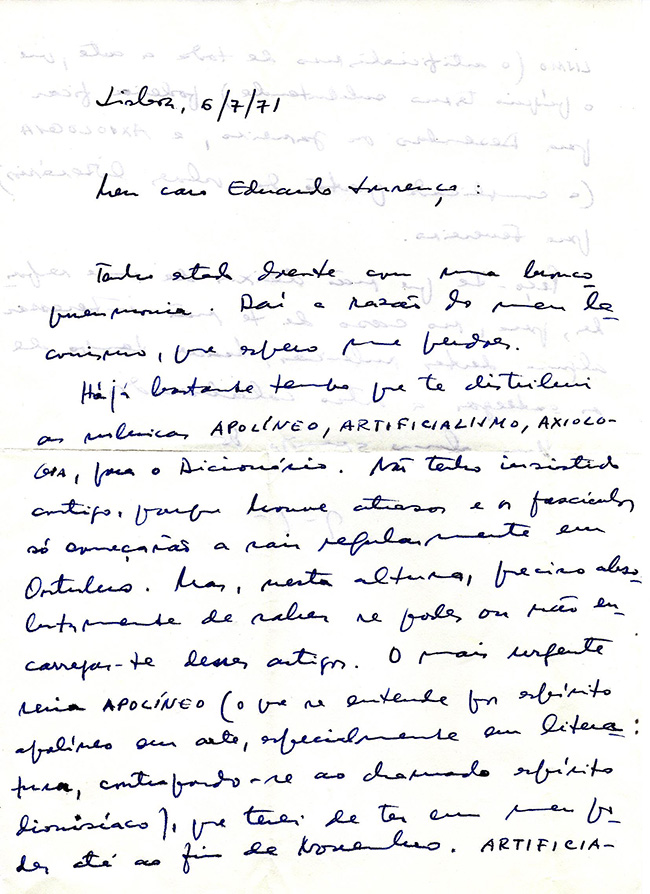 Lisboa, 6/7/71
Meu caro Eduardo Lourenço:
Tenho estado doente com uma bronco
pneumonia. Daí a razão do meu la-
conismo, que espero me perdoes.
Há já bastante tempo que te distribuí
as rubricas APOLÍNEO, ARTIFICIALISMO, AXIOLO-
GIA, para o Dicionário. Não tenho insistido
contigo, porque houve atrasos e os fascículos
só começarão a sair regularmente em
Outubro. Mas, nesta altura, preciso abso-
lutamente de saber se podes ou não en-
carregar-te desses artigos. O mais urgente
seria APOLÍNEO (o que se entende por espírito
apolíneo em arte, especialmente em litera-
tura, contrapondo-se ao chamado espírito
dionisíaco), que terei de ter em meu po-
der até ao fim de Novembro. ARTIFICIA-